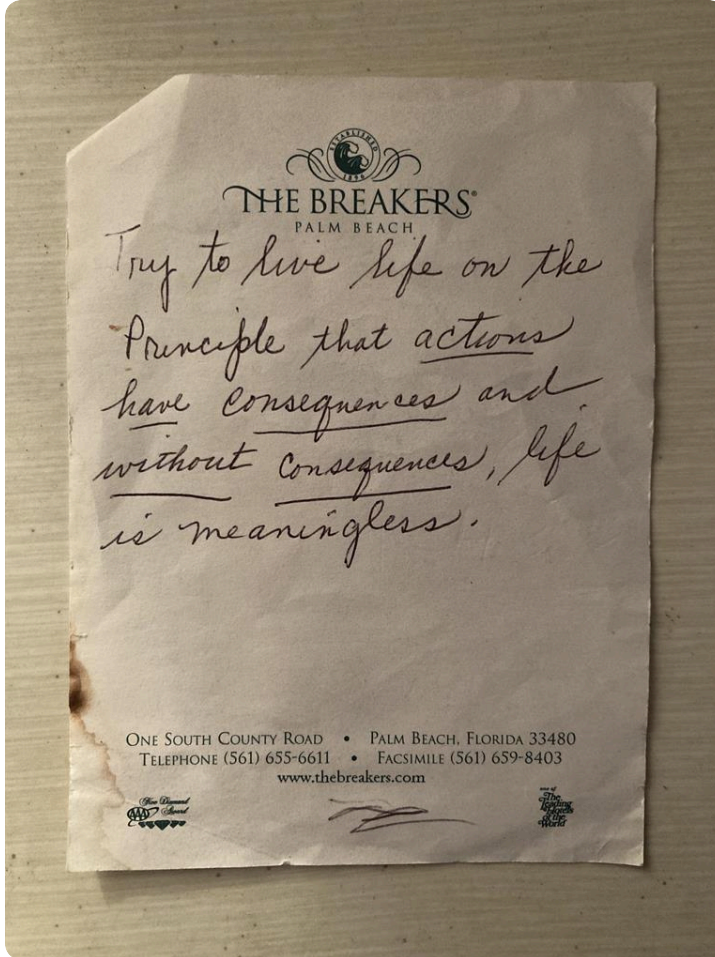 ESTABLISHED
1896
THE BREAKERS®
PALM BEACH
Try to live life on the
Principle that actions
have consequences and
without consequences, life
is meaningless.
ONE SOUTH COUNTY ROAD • PALM BEACH, FLORIDA 33480
TELEPHONE (561) 655-6611 • FACSIMILE (561) 659-8403
www.thebreakers.com
AAA Five Diamond
Award
one of
The
Leading
Hotels
of the
World